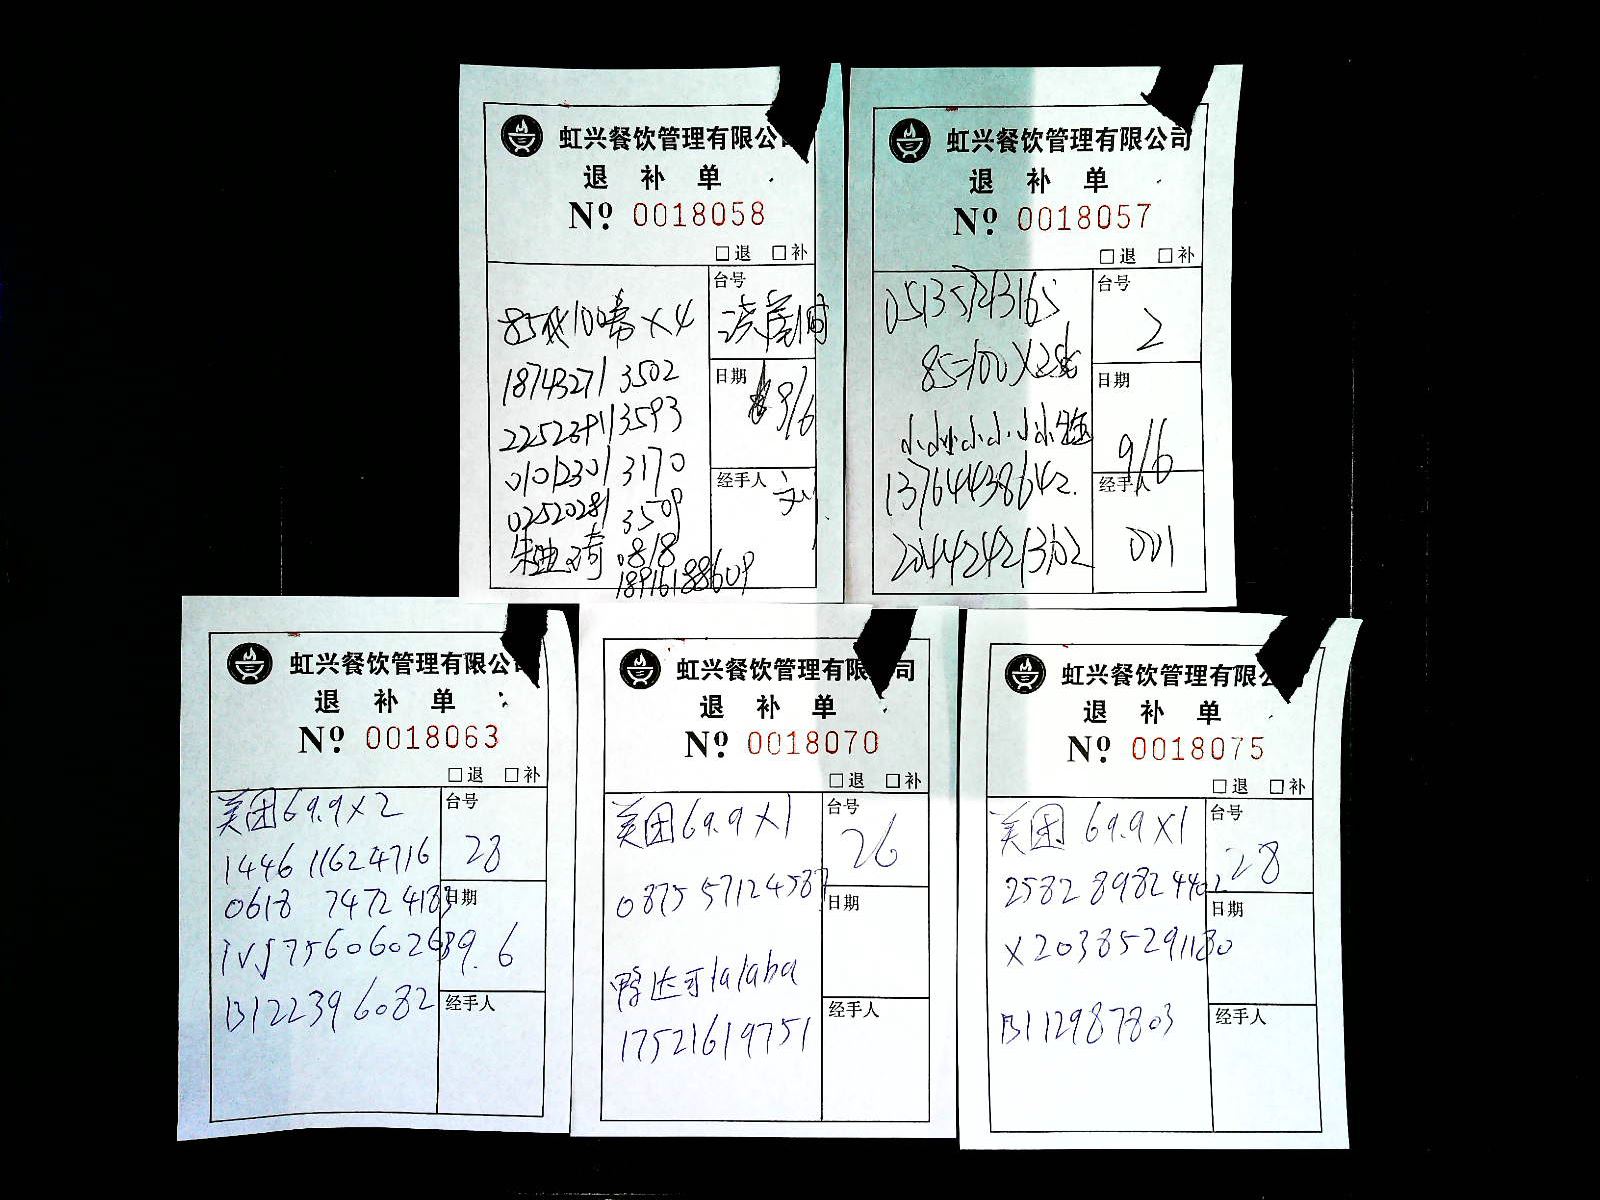 虹兴餐饮管理有限公
退 补 单
Nº 0018058
□退 □补
台号
85 100 ×4
18743271 3502
日期
9/6
22523911 3593
01012301 3170
经手人
刘
02520281 3509
朱迪琦 0818
18916188609
虹兴餐饮管理有限公司
退 补 单
Nº 0018057
□退 □补
051357243165
台号
2
85=100×2
日期
9/6
小小小小小小
13764438642
经手人
001
204424213102
虹兴餐饮管理有限公司
退 补 单
Nº 0018063
□退 □补
美团69.9×2
台号
28
1446 11624716
0618 74724183
日期
9.6
1VJ7560602639
B122396082
经手人
虹兴餐饮管理有限公司
退 补 单
Nº 0018070
□退 □补
美团69.9×1
台号
26
0875 57124587
日期
lalaba
经手人
17521619751
虹兴餐饮管理有限公
退 补 单
Nº 0018075
□退 □补
美团 69.9×1
台号
28
2582 89824402
日期
X20385291180
B112987803
经手人